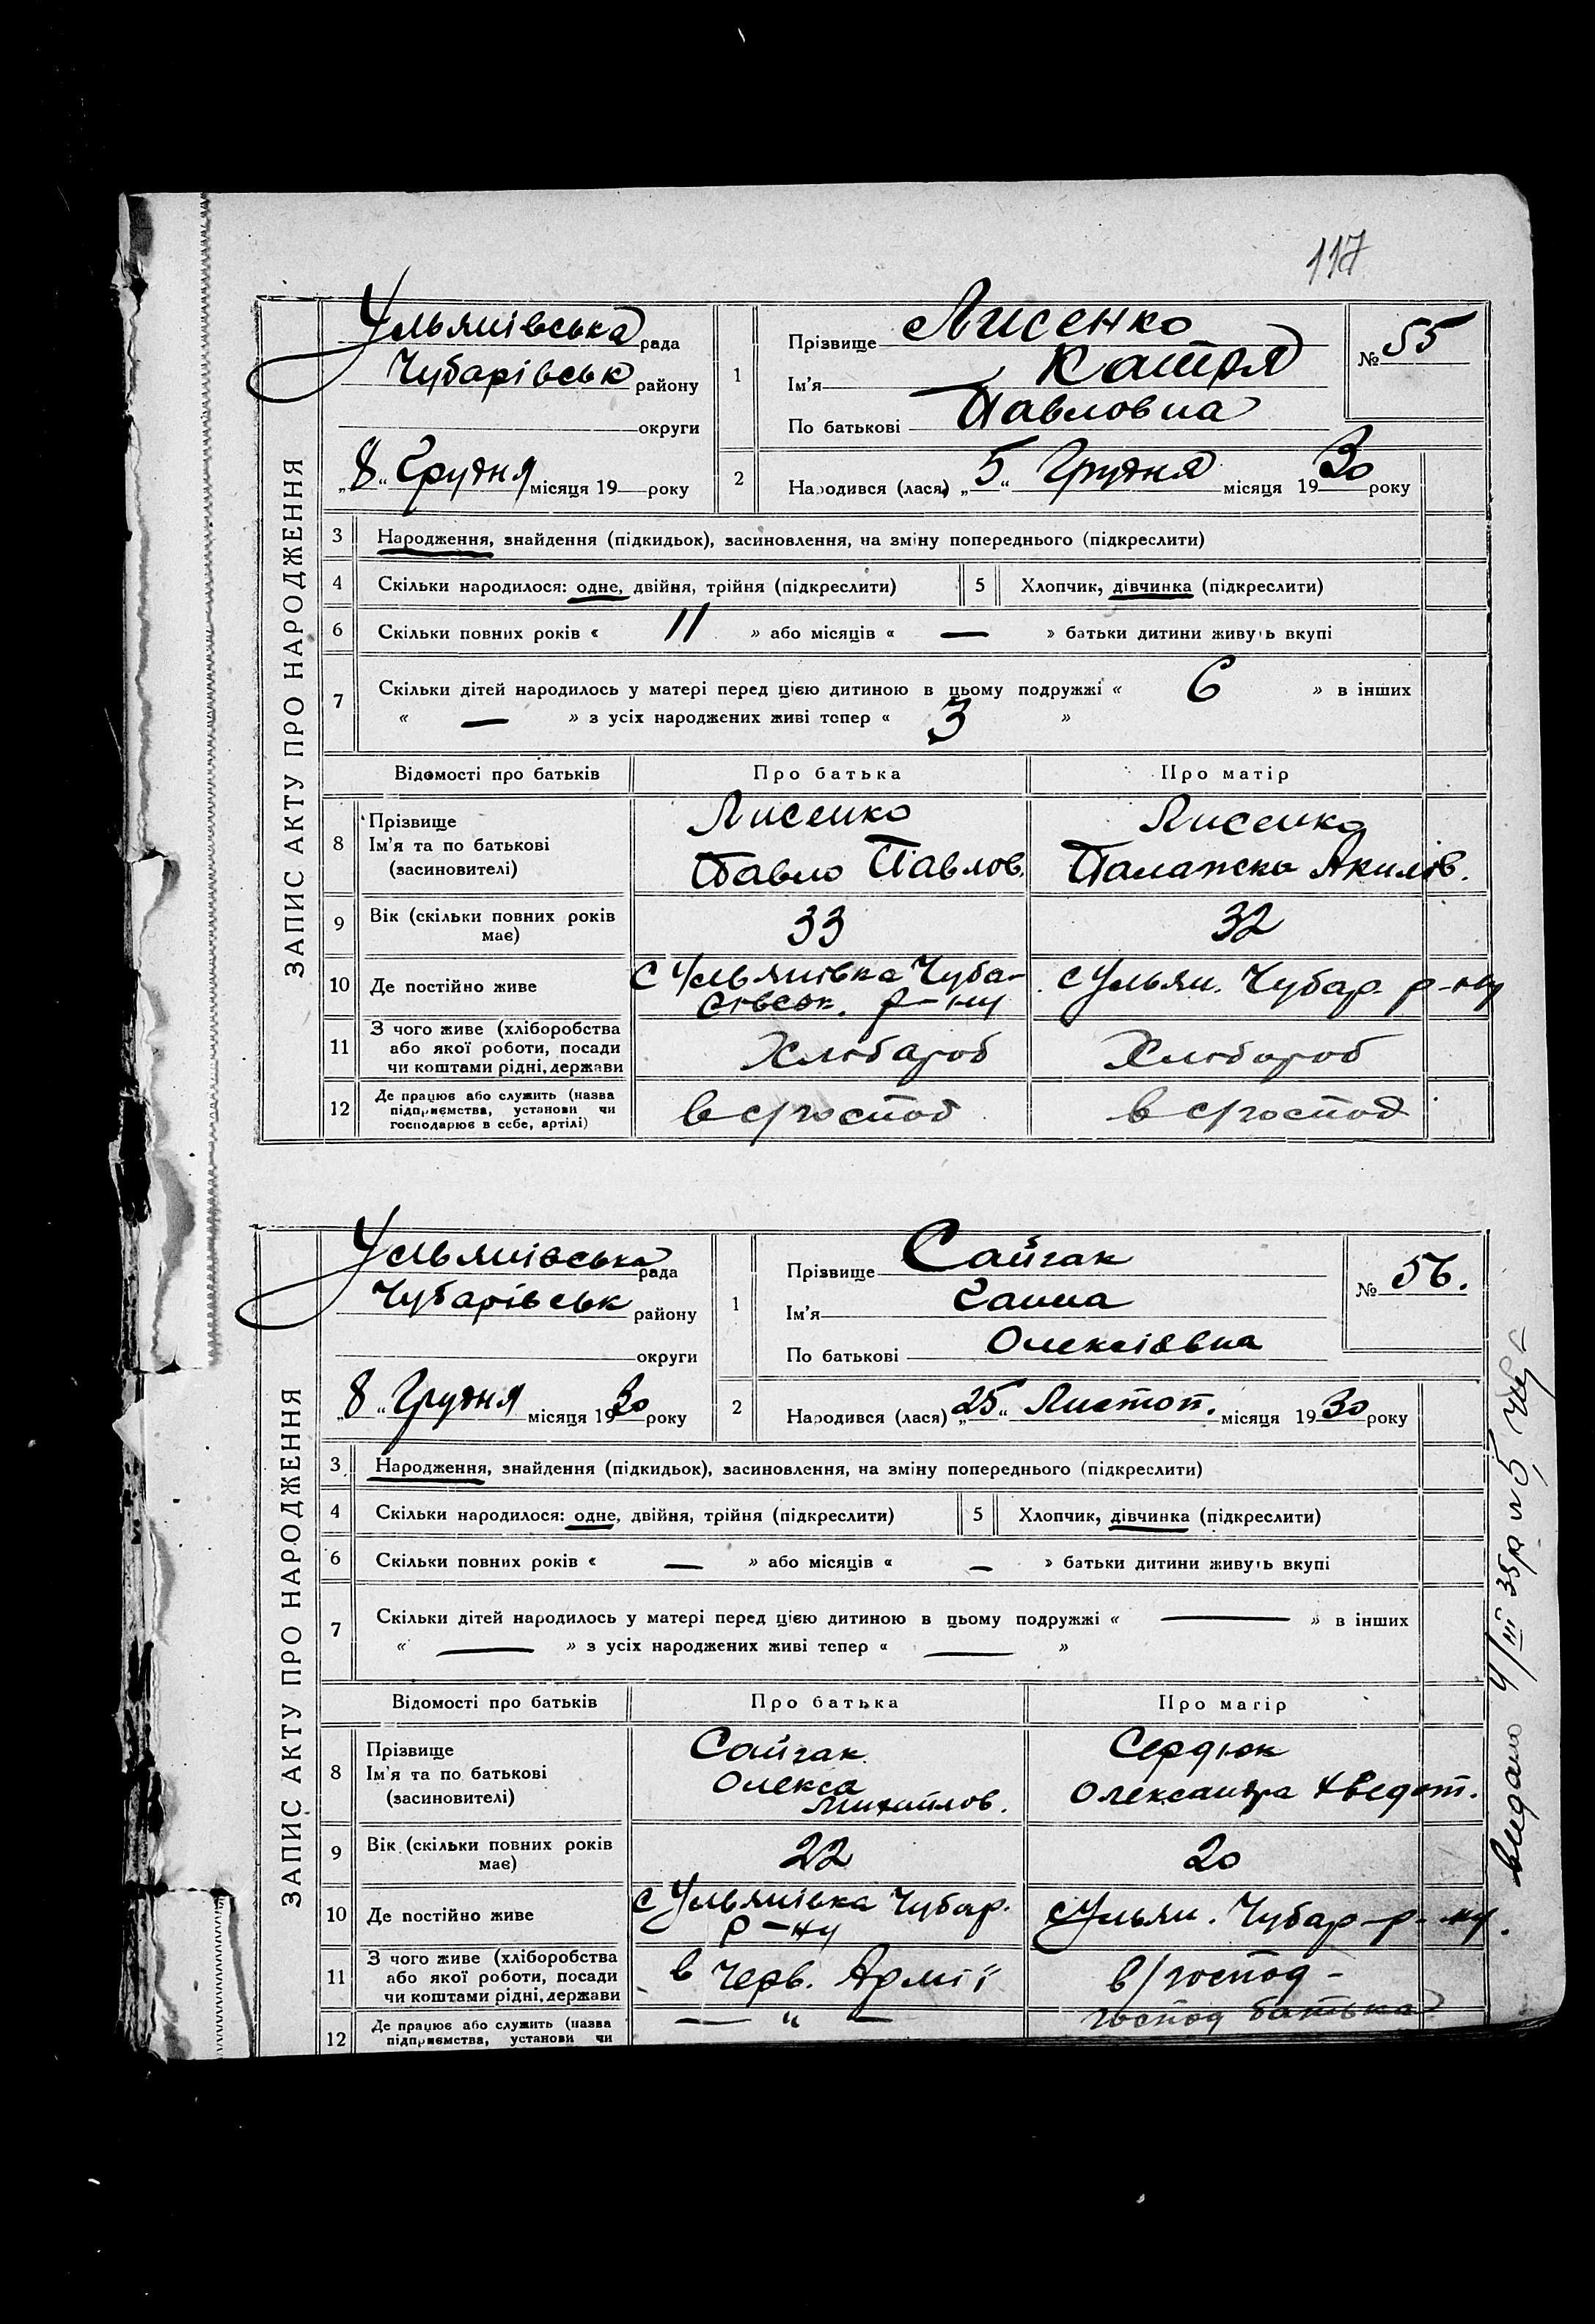 117
ЗАПИС АКТУ ПРО НАРОДЖЕННЯ
Ульянівська рада
Чубарівськ району
округи
„8“ Грудня місяця 19 року
1
Прізвище Лисенко
Ім'я Катря
По батькові Павловна
№ 55
2
Народився (лася) „5“ Грудня місяця 1930 року
3 Народження, знайдення (підкидьок), засиновлення, на зміну попереднього (підкреслити)
4 Скільки народилося: одне, двійня, трійня (підкреслити) 5 Хлопчик, дівчинка (підкреслити)
6 Скільки повних років « 11 » або місяців « — » батьки дитини живуть вкупі
7 Скільки дітей народилось у матері перед цією дитиною в цьому подружжі « 6 » в інших
« — » з усіх народжених живі тепер « 3 »
Відомості про батьків Про батька Про матір
8 Прізвище
Ім'я та по батькові
(засиновителі)
Лисенко
Павло Павлов.
Лисенко
Палажка Акилів.
9 Вік (скільки повних років
має)
33
32
10 Де постійно живе
с Ульянівка Чуба-
рівськ. р-ну
с Ульян. Чубар. р-ну
11 З чого живе (хліборобства
або якої роботи, посади
чи коштами рідні, держави
Хлібороб
Хлібороб
12 Де працює або служить (назва
підприємства, установи чи
господарює в себе, артілі)
в с/господ
в с/господ
ЗАПИС АКТУ ПРО НАРОДЖЕННЯ
Ульянівська рада
Чубарівськ району
округи
„8“ Грудня місяця 1930 року
1
Прізвище Сайгак
Ім'я Ганна
По батькові Олексіївна
№ 56.
2
Народився (лася) „25“ Листоп. місяця 1930 року
3 Народження, знайдення (підкидьок), засиновлення, на зміну попереднього (підкреслити)
4 Скільки народилося: одне, двійня, трійня (підкреслити) 5 Хлопчик, дівчинка (підкреслити)
6 Скільки повних років « — » або місяців « — » батьки дитини живуть вкупі
7 Скільки дітей народилось у матері перед цією дитиною в цьому подружжі « — » в інших
« — » з усіх народжених живі тепер « — »
Відомості про батьків Про батька Про матір
8 Прізвище
Ім'я та по батькові
(засиновителі)
Сайгак
Олекса
Михайлов.
Сердюк
Олександра Хведот.
9 Вік (скільки повних років
має)
22
20
10 Де постійно живе
с Ульянівка Чубар.
р-ну
с Ульян. Чубар-р-ну.
11 З чого живе (хліборобства
або якої роботи, посади
чи коштами рідні, держави
в Черв. Армії
в/господ-
12 Де працює або служить (назва
підприємства, установи чи
— „ —
господ батька
видано 4/III 35р